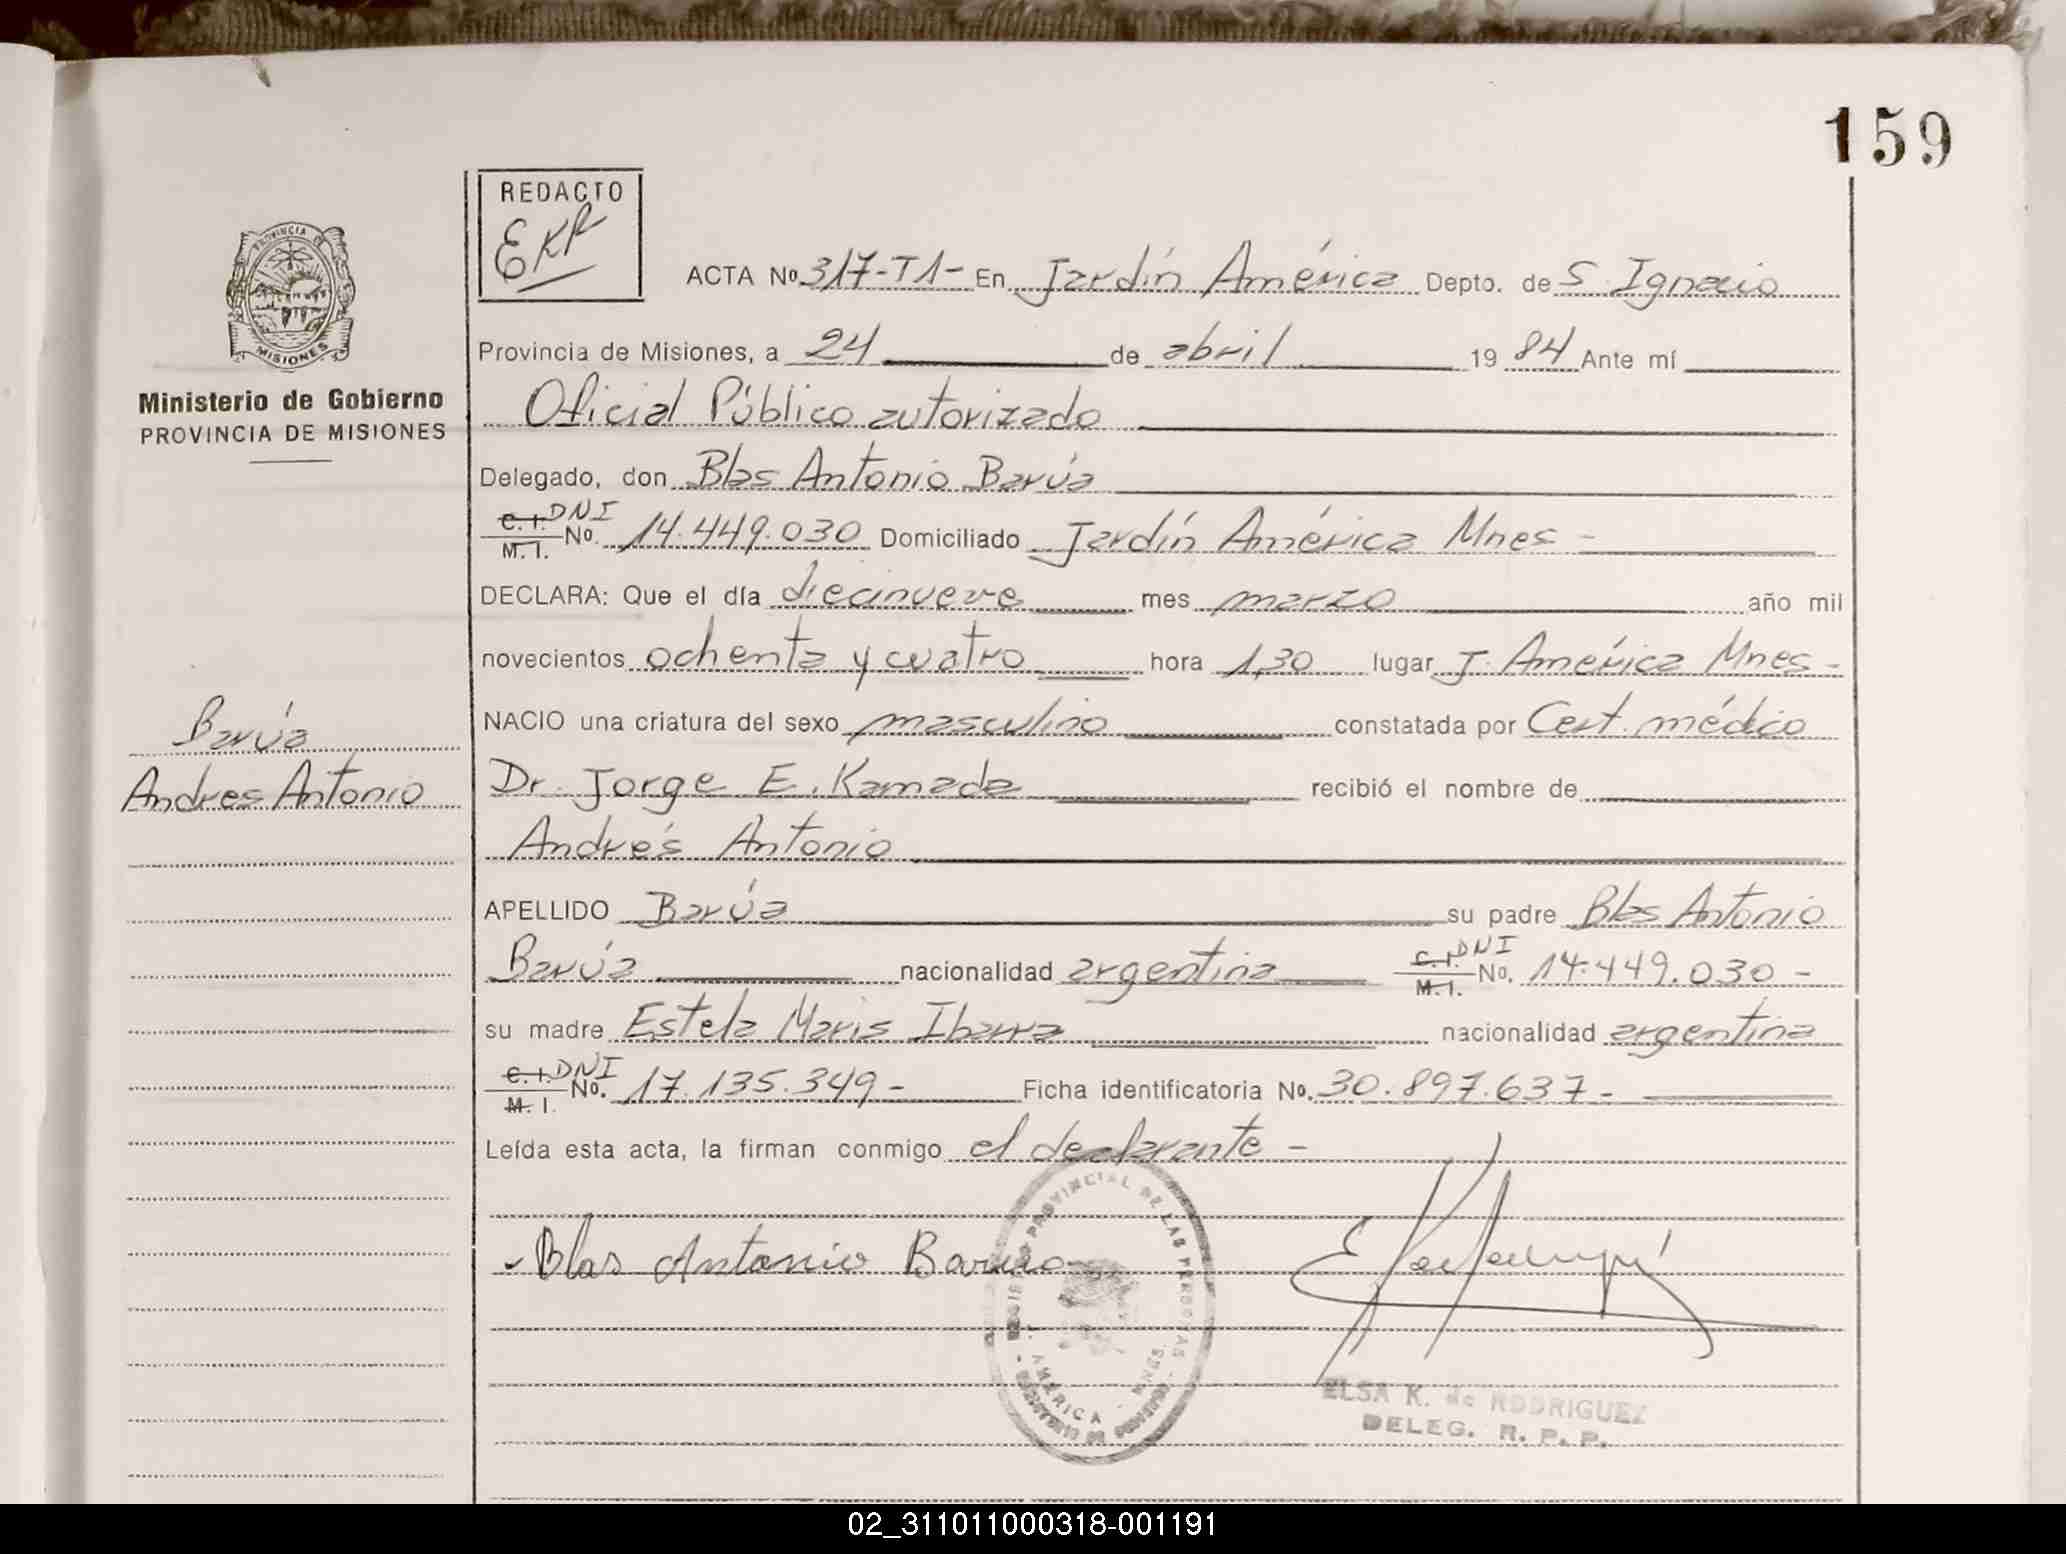 159
REDACTO
EKR
ACTA No. 317-T1- En Jardín América Depto. de S. Ignacio
PROVINCIA DE
MISIONES
Provincia de Misiones, a 24 de abril 1984 Ante mí
Ministerio de Gobierno
PROVINCIA DE MISIONES
Oficial Público autorizado
Delegado, don Blas Antonio Barúa
C. I. DNI
M. I. No. 14.449.030 Domiciliado Jardín América Mnes -
DECLARA: Que el día diecinueve mes marzo año mil
novecientos ochenta y cuatro hora 1,30 lugar J. América Mnes -
NACIO una criatura del sexo masculino constatada por Cert. médico
Barúa
Andres Antonio
Dr. Jorge E. Kamada recibió el nombre de
Andrés Antonio
APELLIDO Barúa su padre Blas Antonio
Barúa nacionalidad argentina C. I. DNI
M. I. No. 14.449.030 -
su madre Estela Maris Ibarra nacionalidad argentina
C. I. DNI
M. I. No. 17.135.349 - Ficha identificatoria No. 30.897.637 -
Leída esta acta, la firman conmigo el declarante -
- Blas Antonio Barua
REGISTRO PROVINCIAL DE LAS PERSONAS
J. AMERICA - MNES.
ELSA K. de RODRIGUEZ
DELEG. R. P. P.
02_311011000318-001191